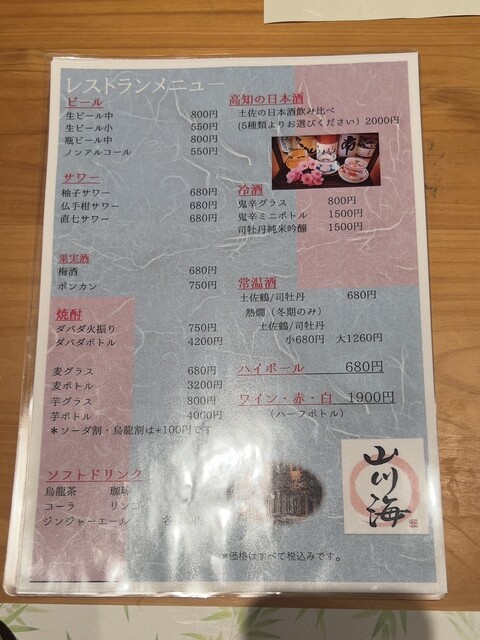 レストランメニュー
ビール
生ビール中 800円
生ビール小 550円
瓶ビール中 800円
ノンアルコール 550円
サワー
柚子サワー 680円
仏手柑サワー 680円
直七サワー 680円
果実酒
梅酒 680円
ポンカン 750円
焼酎
ダバダ火振り 750円
ダバダボトル 4200円
麦グラス 680円
麦ボトル 3200円
芋グラス 800円
芋ボトル 4000円
*ソーダ割・烏龍割は+100円です
ソフトドリンク
烏龍茶 珈琲
コーラ リンゴ
ジンジャーエール 各
高知の日本酒
土佐の日本酒飲み比べ
(5種類よりお選びください) 2000円
冷酒
鬼辛グラス 800円
鬼辛ミニボトル 1500円
司牡丹純米吟醸 1500円
常温酒
土佐鶴/司牡丹 680円
熱燗(冬期のみ)
土佐鶴/司牡丹
小680円 大1260円
ハイボール 680円
ワイン・赤・白 1900円
(ハーフボトル)
山川海
*価格はすべて税込みです。